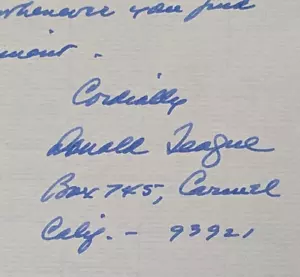 whenever you find
Cordially
Donald Teague
Box 745, Carmel
Calif. - 93921